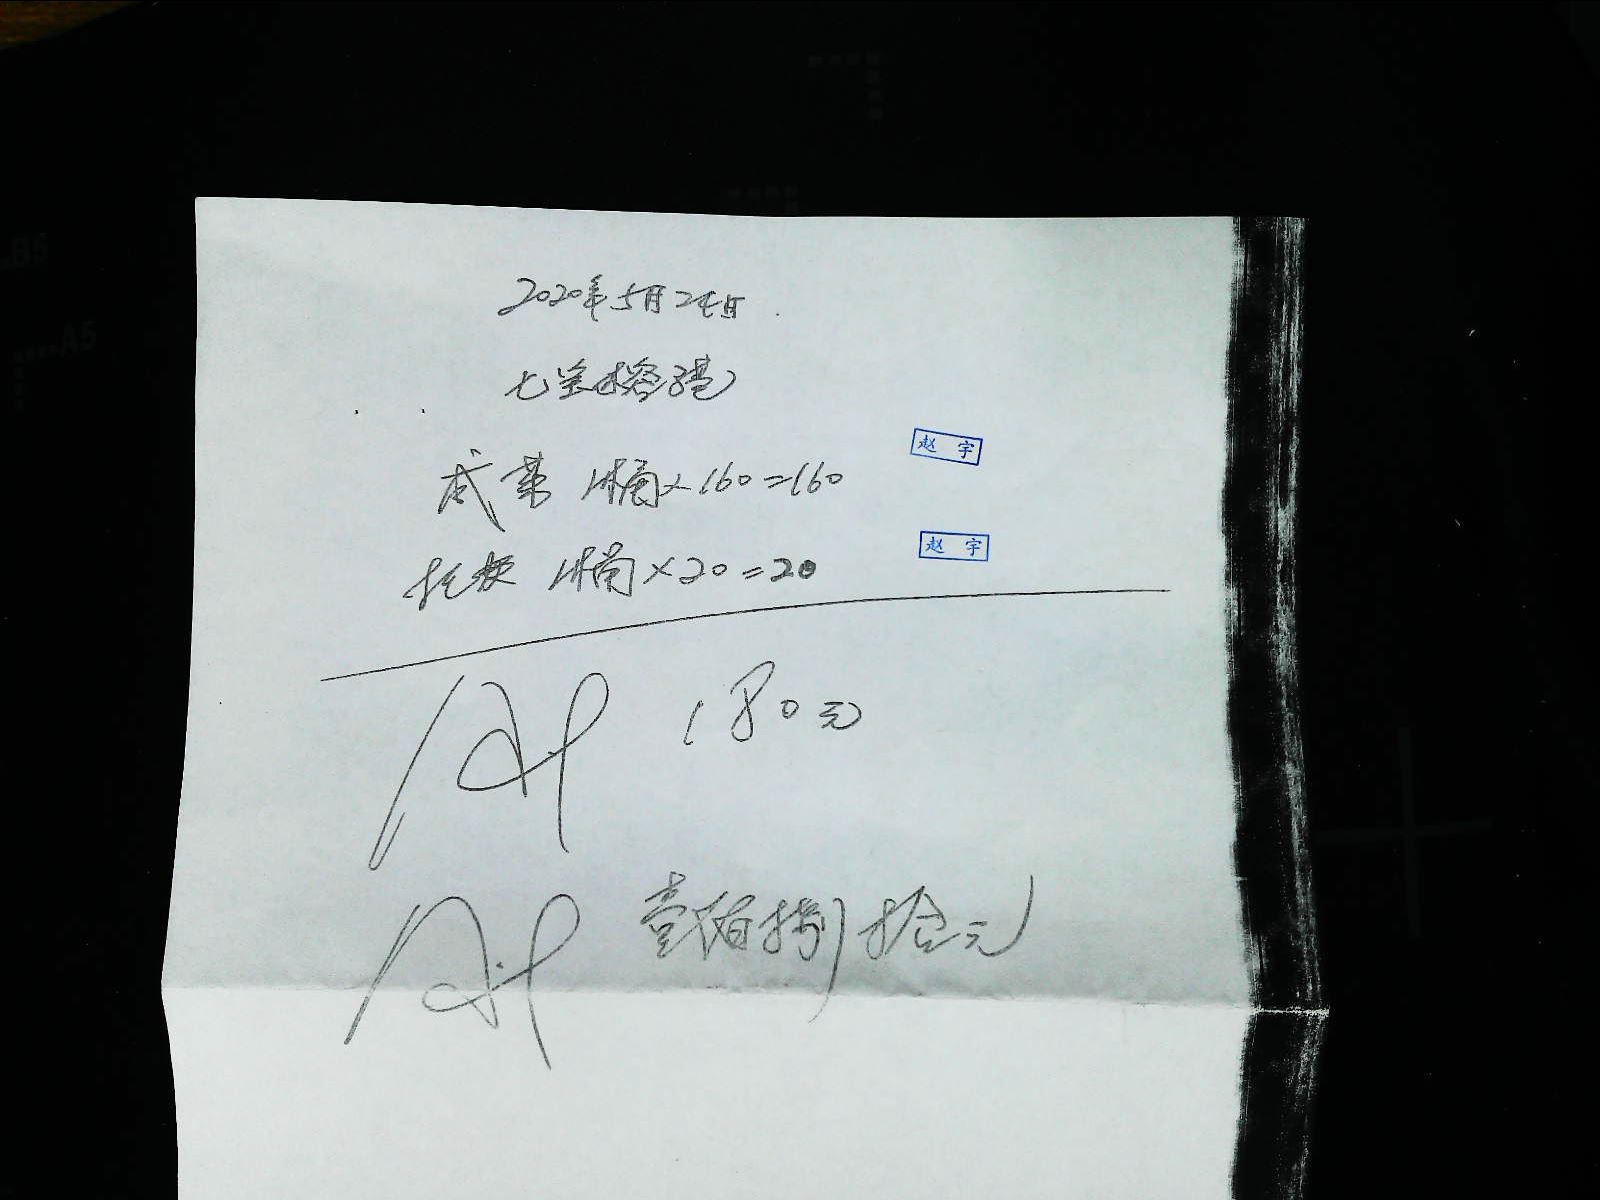 2020年5月24日
七宝榕港
咸菜 1桶×160=160
赵 宇
1桶×20=20
赵 宇
180元
壹佰捌拾元
B5
A5